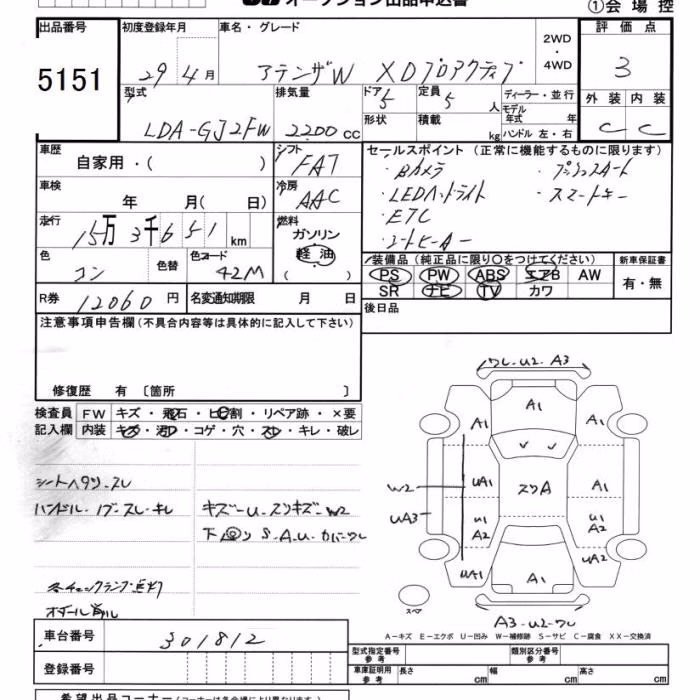 オークション出品申込書
①会場控
出品番号 初度登録年月 車名・グレード 2WD・4WD 評価点
5151 29年 4月 アテンザW XDプロアクティブ 3
型式 排気量 ドア 定員 ディーラー・並行 外装 内装
LDA-GJ2FW 2200cc 5 5人 モデル年式 年 C C
形状 積載 kg ハンドル 左・右
車歴 シフト セールスポイント (正常に機能するものに限ります)
自家用・( ) FAT ・Bカメラ ・プッシュスタート
車検 冷房 ・LEDヘッドライト ・スマートキー
年 月( 日) AAC ・ETC
走行 燃料 ・シートヒーター
15万3千651km ガソリン
軽油
( )
色 色替 色コード 装備品 (純正品に限り〇をつけてください) 新車保証書
コン 42M PS PW ABS エアB AW 有・無
R券 12060円 名変通知期限 月 日 SR ナビ TV カワ
注意事項申告欄(不具合内容等は具体的に記入して下さい) 後日品
修復歴 有 〔箇所 〕
検査員 FW キズ・飛石・ヒビ割・リペア跡・×要
記入欄 内装 キズ・汚れ・コゲ・穴・スレ・キレ・破レ
ワレ-U2-A3
A1
A1 A1
シートヘタリ・スレ
ハンドル・ノブ-スレ・キレ キズ-U-スリキズ-W2
下回り S-A-U-カバーワレ
W2 UA1 スリA A1
UA3 U1 A2 U1 A2
冬チェックランプ点灯
UA1 A1 UA2
スペア
A3-U2-ワレ
A-キズ E-エクボ U-凹み W-補修跡 S-サビ C-腐食 XX-交換済
車台番号 301812
型式指定番号 参考 類別区分番号 参考
登録番号 車庫証明用 参考 長さ cm 幅 cm 高さ cm
希望出品コーナー